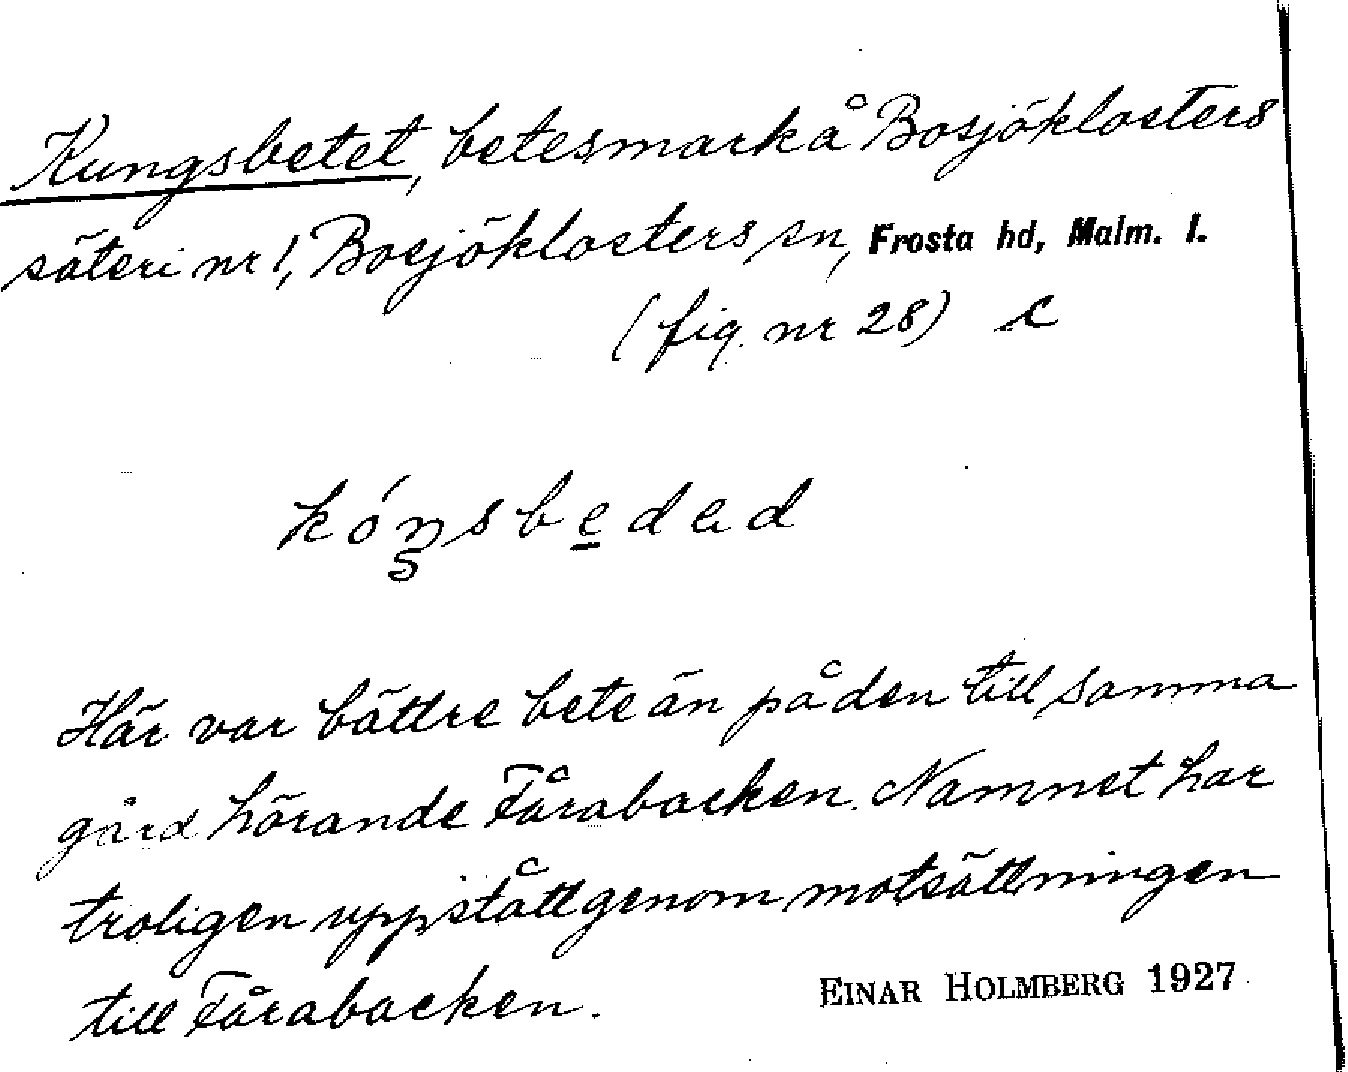 Kungsbetet, betesmark å Bosjöklosters
säteri nr 1, Bosjöklosters sn, Frosta hd, Malm. l.
(fig. nr 28) c
kóŋsbedad
Här var bättre bete än på den till samma
gård hörande Fårabacken. Namnet har
troligen uppstått genom motsättningen
till Fårabacken.
EINAR HOLMBERG 1927